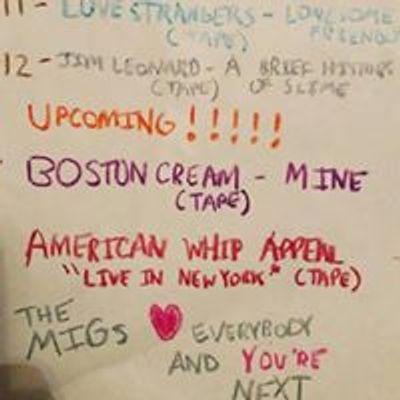 11 - LOVE STRANGERS - LONESOME
(TAPE) FRIENDLY
12 - JIM LEONARD - A BRIEF HISTORY
(TAPE) OF SLIME
UPCOMING!!!!!
BOSTON CREAM - MINE
(TAPE)
AMERICAN WHIP APPEAL
"LIVE IN NEW YORK" (TAPE)
THE
MIGS ♥ EVERYBODY
AND YOU'RE
NEXT